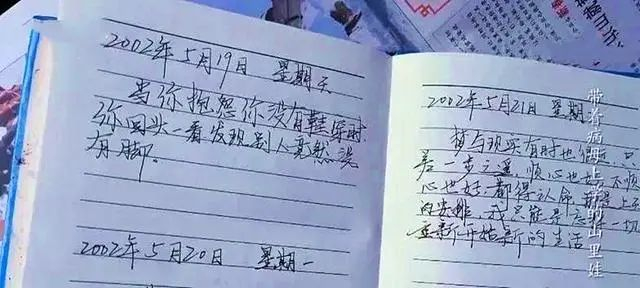 2002年5月19日 星期天
当你抱怨你没有鞋穿时
你回头一看发现别人竟然没
有脚.
2002年5月20日 星期一
2002年5月21日 星期
与现实有时也
差一步之遥 顺心也好 不顺
心也好 都得认命 上
的安排 我只能 一切
重新开始新的生活
带着病母上 山里娃